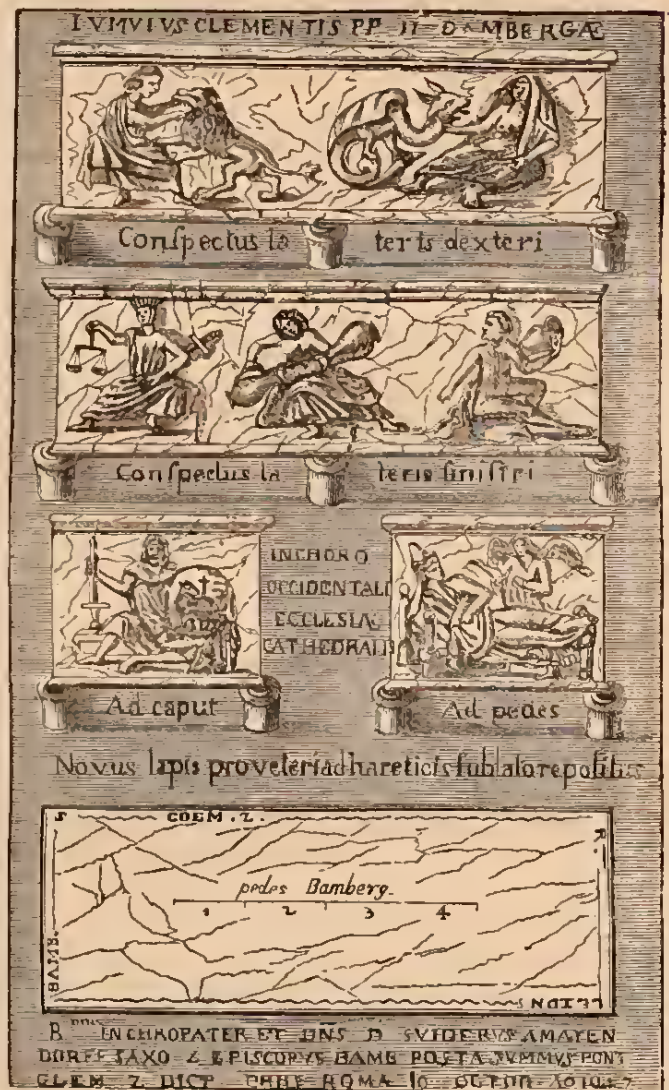 TVMVLVS CLEMENTIS PP II BAMBERGÆ
Conſpectus la teris dexteri
Conſpectus la teris ſiniſtri
IN CHORO
OCCIDENTALI
ECCLESIAE
CATHEDRALIS
Ad caput
Ad pedes
Novus lapis pro veteri ad hæreticis ſublato repoſitus
S COEM. 2. R.
pedes Bamberg.
1 2 3 4
BAMB.
R IN CHRO PATER ET DNS D SVIDERVS A MAYEN
DORFF SAXO 2 EPISCOPVS BAMB POSTA SVMMVS PONT
CLEM 2 DICT ROMÆ